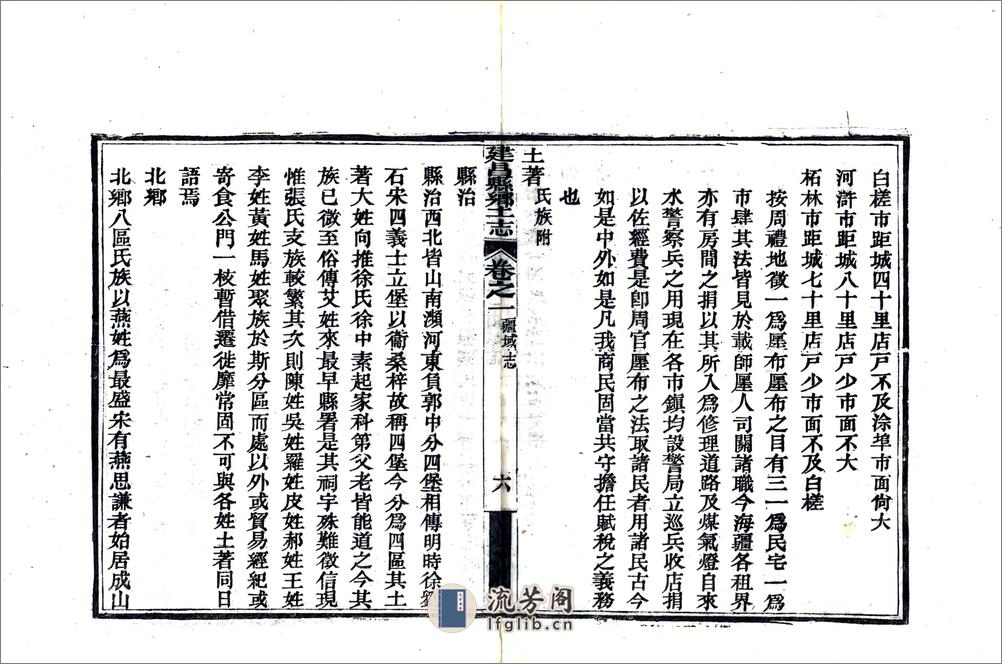 白槎市距城四十里店戸不及涂埠市面尙大
河滸市距城八十里店戸少市面不大
柘林市距城七十里店戸少市面不及白槎
按周禮地徵一爲廛布廛布之目有三一爲民宅一爲
市肆其法皆見於載師廛人司關諸職今海疆各租界
亦有房間之捐以其所入爲修理道路及煤氣燈自來
水警察兵之用現在各市鎭均設警局立巡兵收店捐
以佐經費是卽周官廛布之法取諸民者用諸民古今
如是中外如是凡我商民固當共守擔任賦稅之義務
也
土著 氏族附
建昌縣鄉土志 卷之一 疆域志 六
縣治
縣治西北皆山南瀕河東負郭中分四堡相傳明時徐
石宋四義士立堡以衞桑梓故稱四堡今分爲四區其土
著大姓向推徐氏徐中素起家科第父老皆能道之今其
族已微至俗傳艾姓來最早縣署是其祠宇殊難徵信現
惟張氏支族較繁其次則陳姓吳姓羅姓皮姓郝姓王姓
李姓黃姓馬姓聚族於斯分區而處以外或貿易經紀或
寄食公門一枝暫借遷徙靡常固不可與各姓土著同日
語焉
北鄉
北鄉八區氏族以燕姓爲最盛宋有燕思謙者始居成山
流芳阁
lfglib.cn